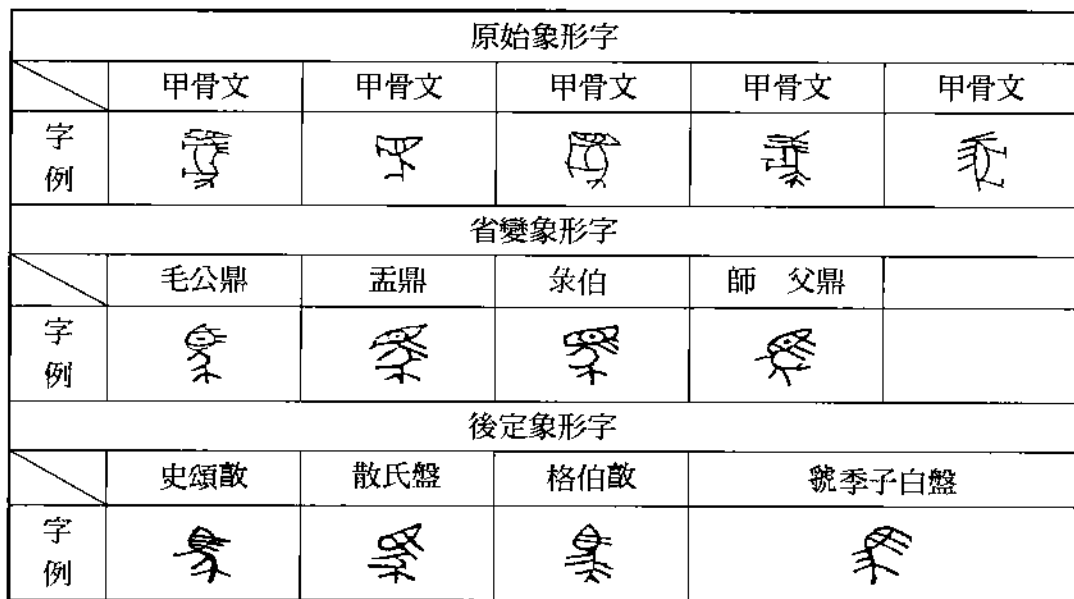 原始象形字
甲骨文 甲骨文 甲骨文 甲骨文 甲骨文
字例
省變象形字
毛公鼎 盂鼎 彔伯 師 父鼎
字例
後定象形字
史頌敿 散氏盤 格伯敿 虢季子白盤
字例